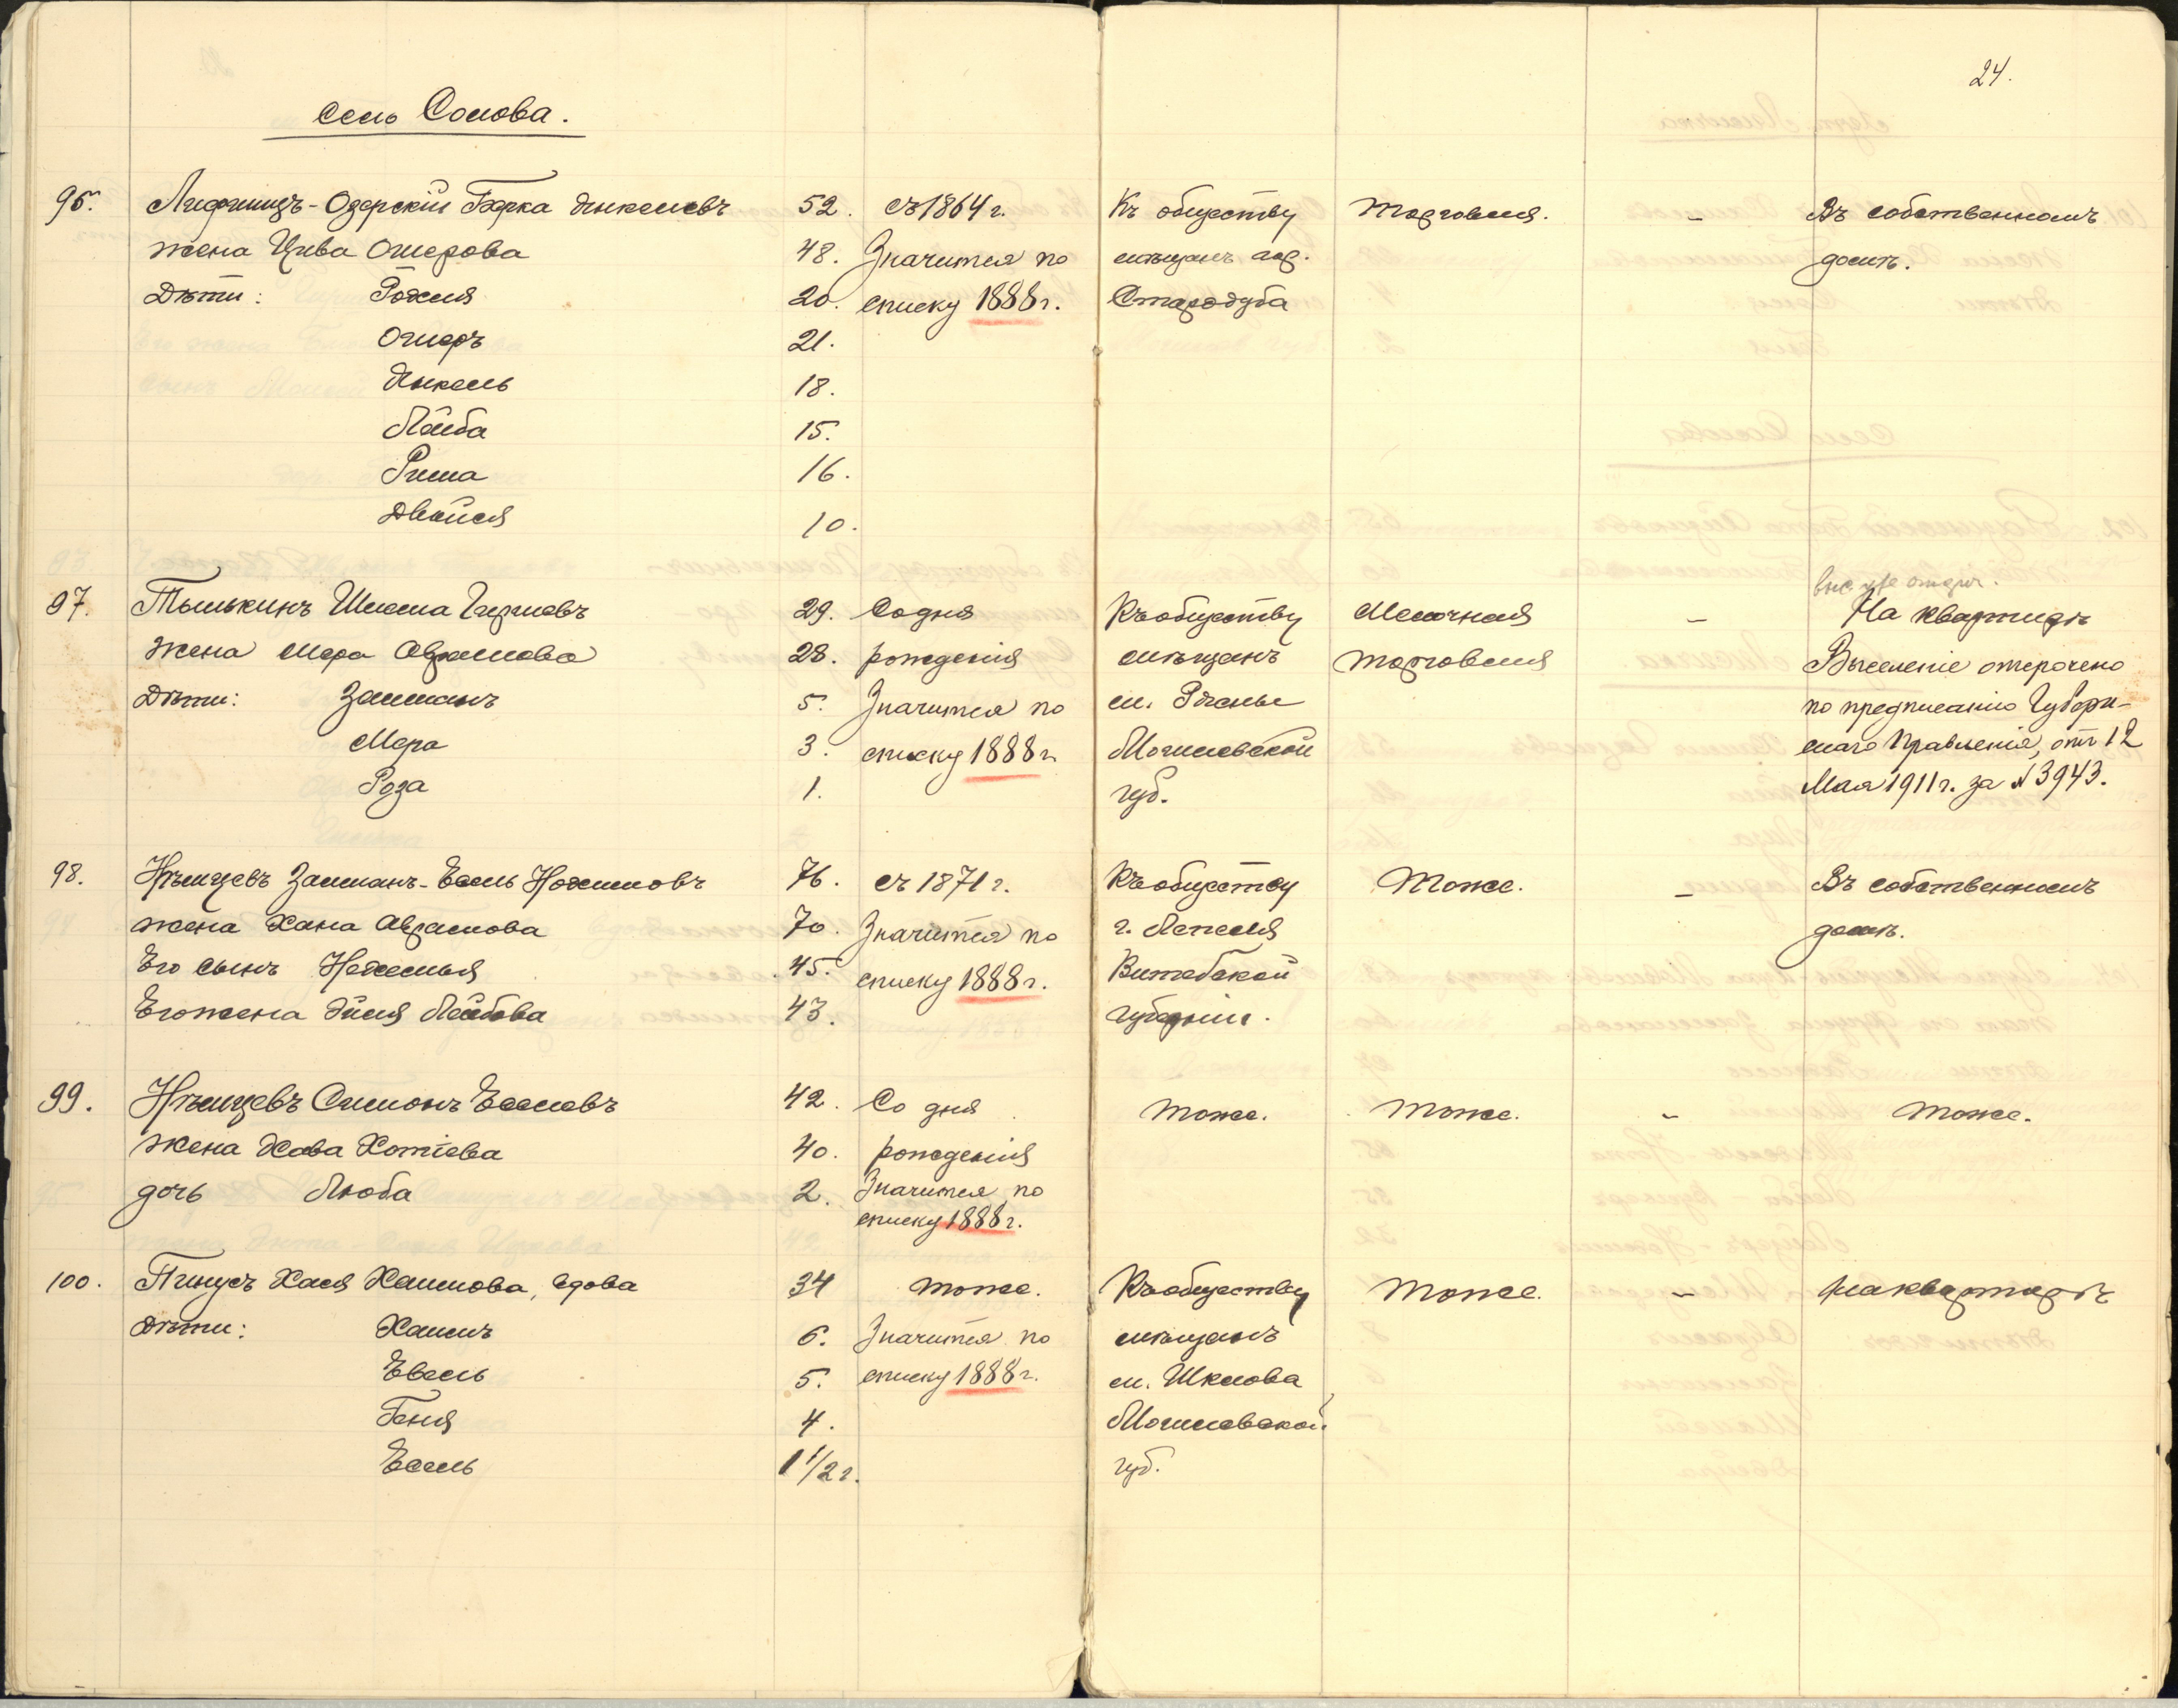 24.
село Сомова.
96. Лифшицъ-Озерскій Бэрка Янкелевъ 52. съ 1864 г. Къ обществу торговля. – Въ собственномъ
жена Цива Ошерова 48. Значится по мѣщанъ гор. домѣ.
Дѣти: 20. списку 1888 г. Стародуба
Ошеръ 21.
Янкель 18.
Лейба 15.
Рима 16.
Двейся 10.
97. Тылькинъ Шлема Гиршевъ 29. Со дня Къ обществу Мелочная – На квартирѣ
жена Мера Абрамова 28. рожденія мѣщанъ торговля Выселеніе отсрочено
Дѣти: Залманъ 5. Значится по м. по предписанію Губерн-
Мера 3. списку 1888 г. Могилевской скаго Правленія, отъ 12
Роза 1. губ. Мая 1911 г. за № 3943.
98. Нѣмцевъ Залманъ-Есель 76. съ 1871 г. Къ обществу Тоже. – Въ собственномъ
жена Хана Абрамова 70. Значится по г. Лепеля домѣ.
Его сынъ 45. списку 1888 г. Витебской
Его жена Лейбова 43. губерніи.
99. Нѣмцевъ Симонъ Еселевъ 42. Со дня тоже. тоже. – тоже.
жена Хава 40. рожденія
дочь Люба 2. Значится по
списку 1888 г.
100. Пинусъ Хася Хаимова, вдова 34 тоже. Къ обществу тоже. – на квартирѣ
Дѣти: Хаимъ 6. Значится по мѣщанъ
Евель 5. списку 1888 г. м. Шклова
Геня 4. Могилевской
Есель 1 1/2 г. губ.